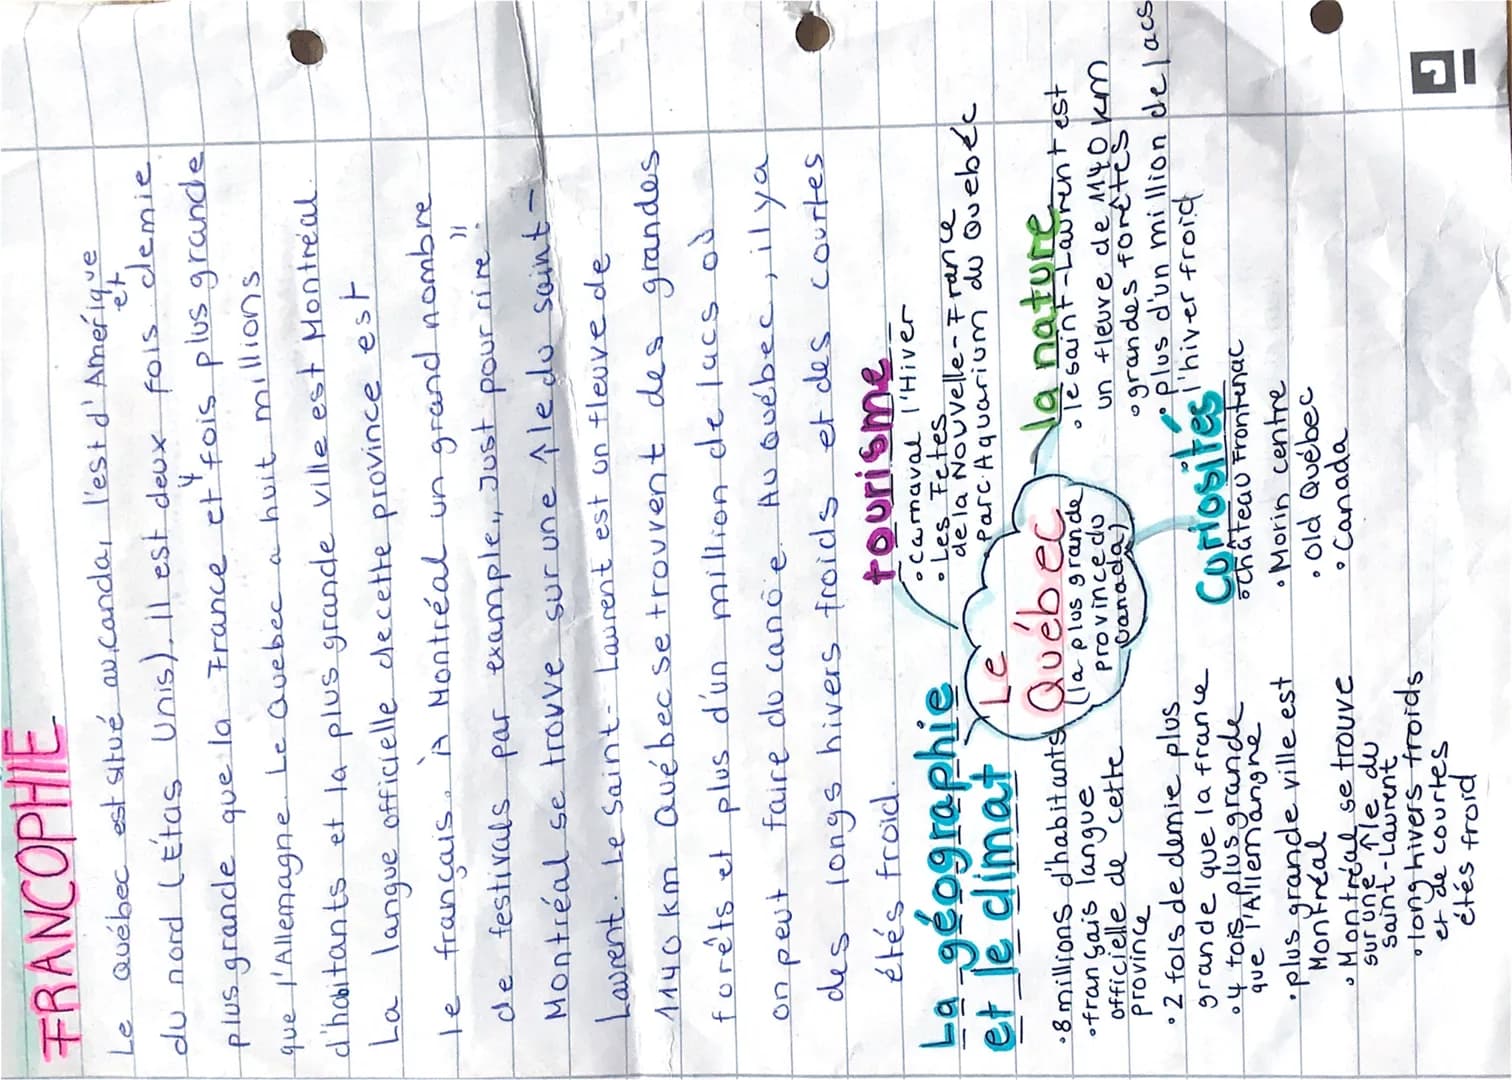 FRANCOPHIE
Le Québec est situé au Canda, l'est d'Amérique
et
du nord (Étas Unis). Il est deux fois demie
plus grande que la France et 4 fois plus grande
que l'Allemagne. Le Quebec a huit millions
d'habitants et la plus grande ville est Montréal.
La langue officielle de cette province est
le français. À Montréal un grand nombre
de festivals par example „Just pour rire".
Montréal se trouve sur une île du saint-
Laurent. Le Saint-Laurent est un fleuve de
1140 km. Québec se trouvent des grandes
forêts et plus d'un million de lacs où
on peut faire du canöe. Au Québec, il y a
des longs hivers froids et des courtes
étés froid.
La géographie
et le climat
• 8 millions d'habitants
• français langue
officielle de cette
province
• 2 fois de demie plus
grande que la france
• 4 fois plus grande
que l'Allemangne
• plus grande ville est
Montréal
• Montréal se trouve
sur une île du
saint-Laurent
• long hivers froids
et de courtes
étés froid
Le
Québec
(la plus grande
province du
Canada)
tourisme
• Carnaval l'Hiver
• Les Fêtes
de la Nouvelle-France
Parc Aquarium du Quebéc
la nature
• le saint-Laurent est
un fleuve de 1140 km
• grandes forêtes
• plus d'un million de lacs
l'hiver froid
Curiosités
• Château Frontenac
• Morin centre
• Old Québec
• Canada